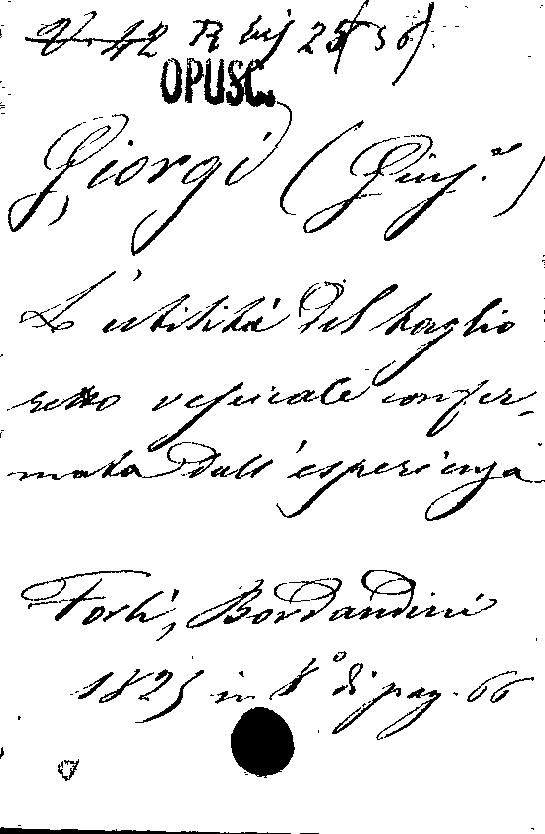 OPUSC.
Giorgi (Gius.e)
L'utilità del taglio
retto vescicale confer-
mata dall'esperienza
Forlì, Bordandini
1825 in 8° di pag. 66